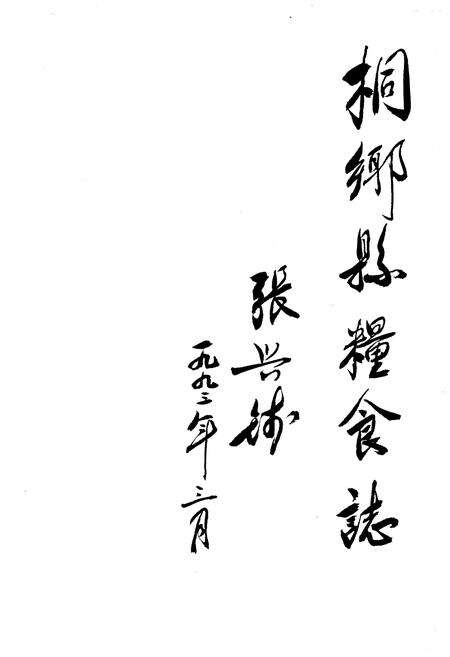 桐鄉縣糧食誌
張兴
一九九二年三月